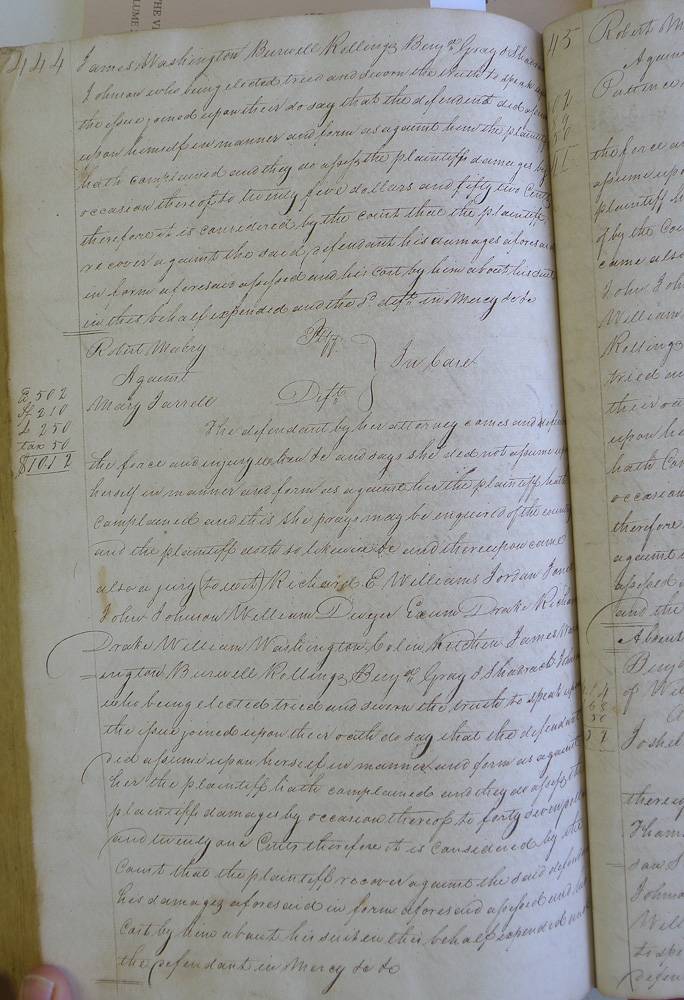 444
James Washington Burwell Rollings Benjn. Gray & Shadrach
Johnson who being elected tried and sworn the truth to speak upon
the issue joined upon their do say that the defendant did assume
upon himself in manner and form as against him the plaintiff
hath complained and they do assess the plaintiffs damages by
occasion thereof to twenty five dollars and fifty two Cents
therefore it is considered by the court that the plaintiff
recover against the said defendant his damages aforesaid
in form aforesaid assessed and his cost by him about his suit
in this behalf expended and the sd. deft. in Mercy &c &c
Robert Mabry Plff.
Against In Case
Mary Jarrell Deft.
C 502
S 210
L 250
tax 50
$10.12
The defendant by her attorney comes and defends
the force and injury when &c and says she did not assume upon
herself in manner and form as against her the plaintiff hath
complained and this she prays may be enquired of the country
and the plaintiff doth so likewise &c and thereupon came
also a jury (to wit) Richard E. Williams Jordan Jones
John Johnson William Exum Drake Richard
Drake William Washington Colin Kitchen James Wash
=ington Burwell Rollings Benjn. Gray & Shadrach Johnson
who being elected tried and sworn the truth to speak upon
the issue joined upon their oath do say that the defendant
did assume upon herself in manner and form as against
her the plaintiff hath complained and they do assess the
plaintiff damages by occasion thereof to forty seven dollars
and twenty one Cents therefore it is considered by the
Court that the plaintiff recover against the said defendant
his damages aforesaid in form aforesaid assessed and his
cost by him about his suit in this behalf expended and
the defendant in Mercy &c &c
45
Robert M
Against
the force an
assume upo
plaintiff h
of by the Cou
came also
John Joh
William
Rollings
tried an
their oa
upon he
hath Com
occasion
therefore
against
assessed
and the
of Wil
Joshel
thereu
Tham
Johnso
Will
to spe